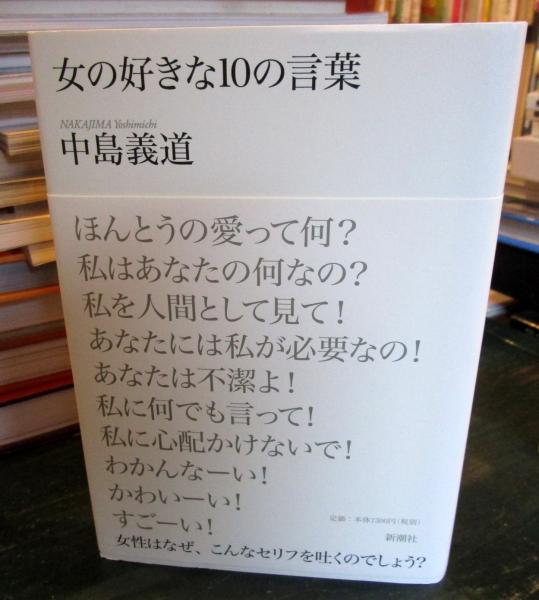 女の好きな10の言葉
NAKAJIMA Yoshimichi
中島義道
ほんとうの愛って何?
私はあなたの何なの?
私を人間として見て!
あなたには私が必要なの!
あなたは不潔よ!
私に何でも言って!
私に心配かけないで!
わかんなーい!
かわいーい!
すごーい!
定価:本体1300円(税別)
新潮社
女性はなぜ、こんなセリフを吐くのでしょう?